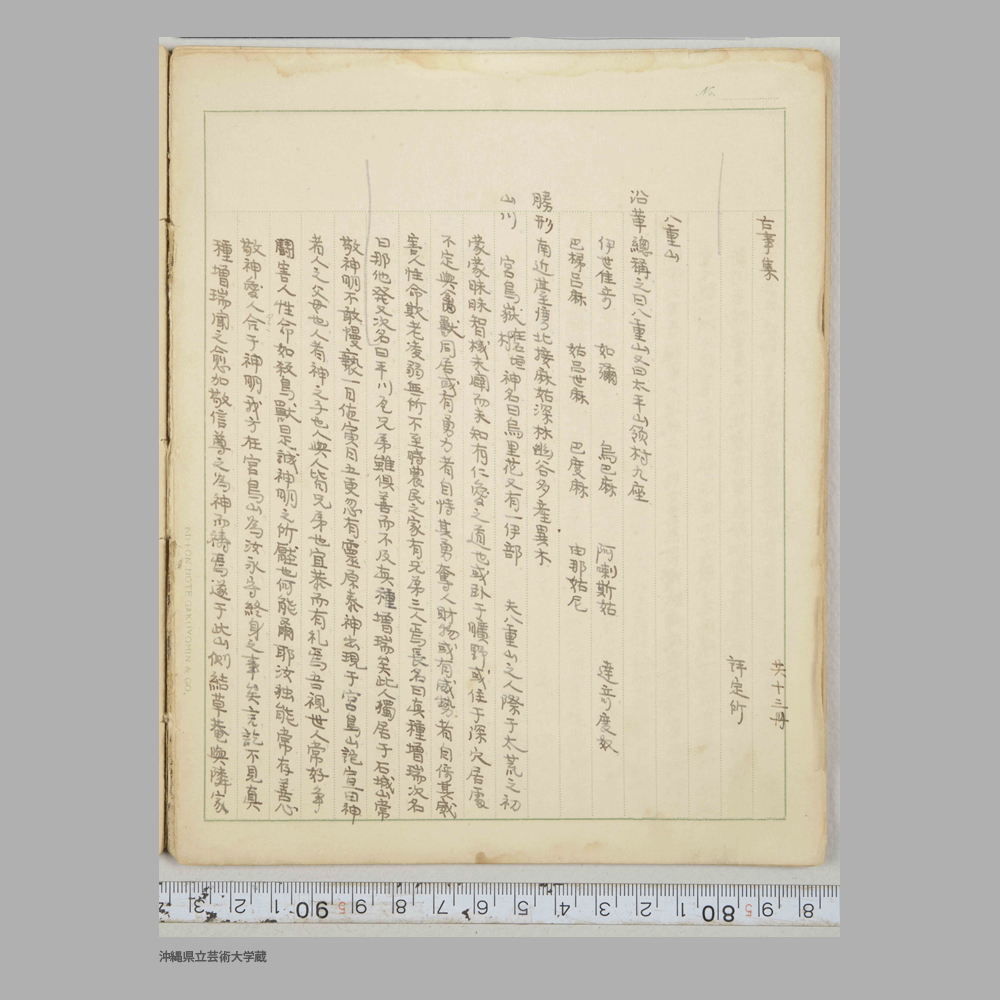 No.
古事集
共十三冊
評定所
八重山
沿革 總稱之曰八重山又曰太平山領村九座
伊世佳竒 如瀰 烏巴麻 阿喇斯姑 達竒度奴
巴梯呂麻 姑呂世麻 巴度麻 由那姑尼
勝形 南近基至灣北接麻姑深林幽谷多產異木
山川 宮鳥嶽 在石垣村 神名曰烏里花又有一伊部 夫八重山之人際于太荒之初
濛濛昧昧智機未開而未知有仁愛之道也或卧于曠野或住于深穴居處
不定與禽獸同居或有勇力者自恃其勇奪人財物或有威勢者自倚其威
害人性命欺老凌弱無所不至時農民之家有兄弟三人焉長名曰真種增瑞次名
曰那他発又次名曰平川瓦兄弟雖俱善而不及真種增瑞矣此人獨居于石城山常
敬神明不敢慢褻一日值寅月五更忽有靈原泰神出現于宮鳥山詫宣曰神
者人之父母也人者神之子也人與人皆兄弟也宜恭而有礼焉吾視世人常好爭
鬪害人性命如殺鳥獸是誠神明之所厭也何能爾耶汝独能常存善心
敬神愛人合于神明我方在宮鳥山為汝永守終身之事矣言訖不見真
種增瑞聞之愈加敬信尊之為神而禱焉遂于此山側結草菴與隣家
NIPPON NOTE GAKUYOHIN & CO.
8 9 5 80 1 2 3 4 5 6 7 8 9 5 90 1 2 3
沖縄県立芸術大学蔵